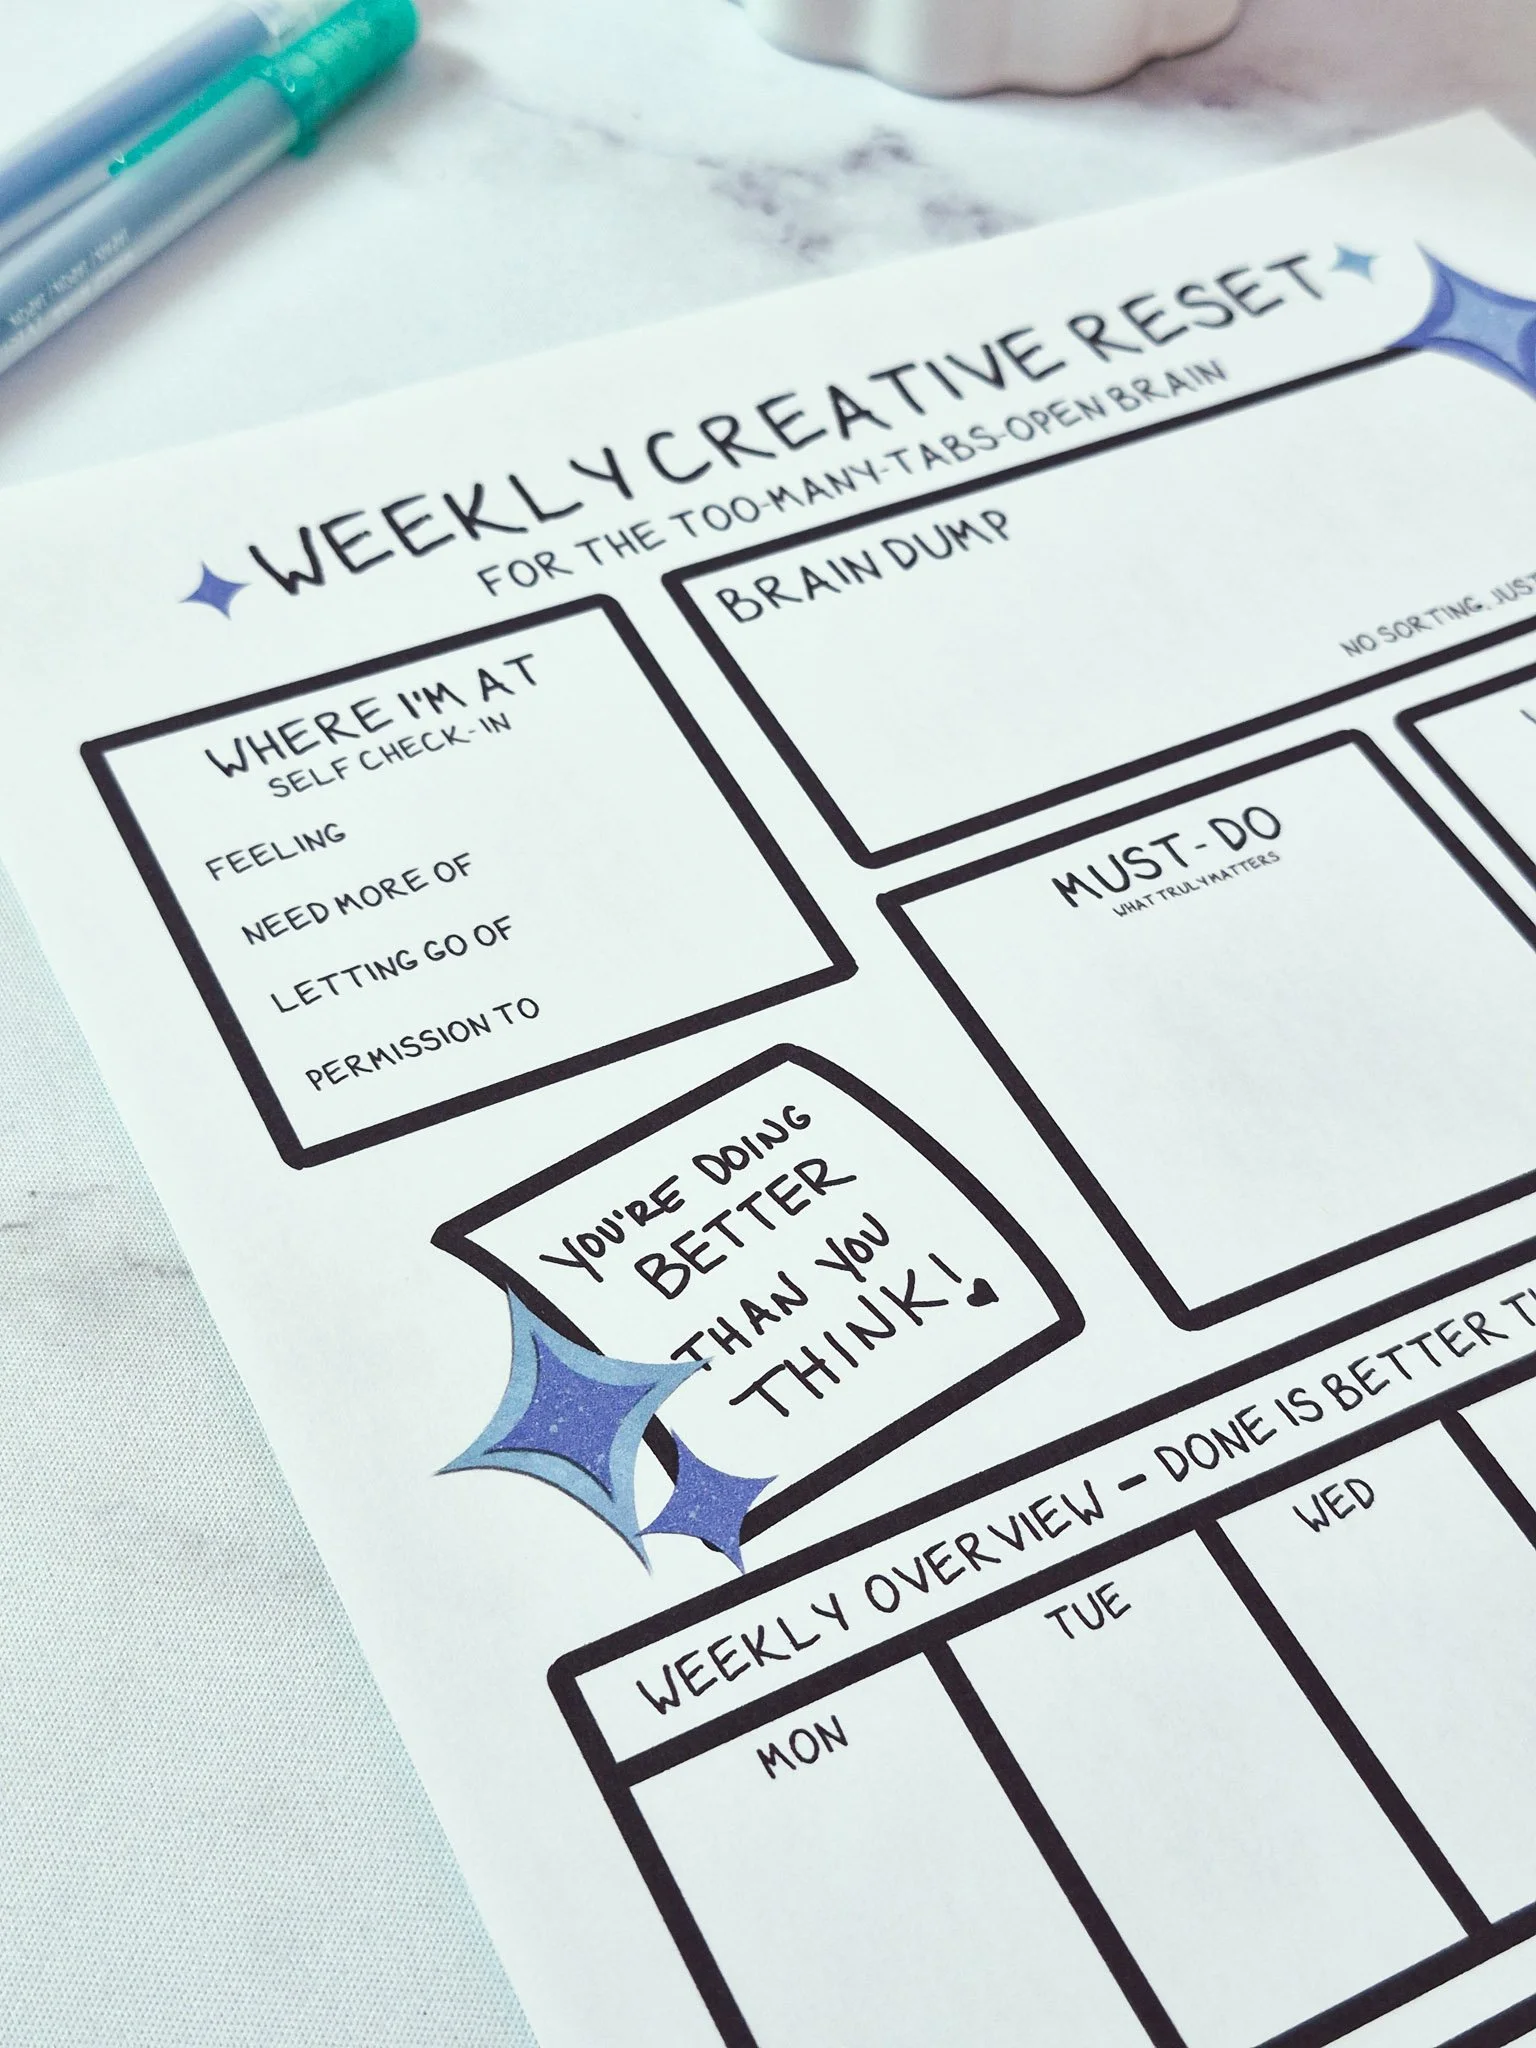 WEEKLY CREATIVE RESET
FOR THE TOO-MANY-TABS-OPEN BRAIN
WHERE I'M AT
SELF CHECK-IN
FEELING
NEED MORE OF
LETTING GO OF
PERMISSION TO
BRAIN DUMP
NO SORTING, JUST
MUST-DO
WHAT TRULY MATTERS
YOU'RE DOING
BETTER
THAN YOU
THINK!
WEEKLY OVERVIEW - DONE IS BETTER
MON
TUE
WED